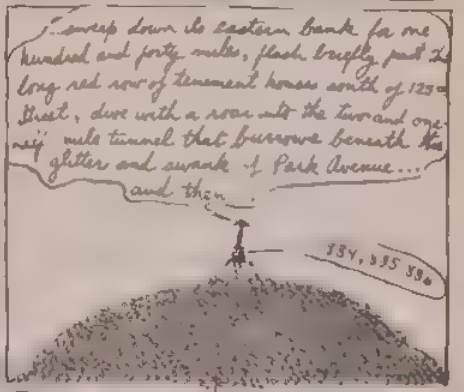 "..sweep down its eastern bank for one
hundred and forty miles, flash briefly past the
long red row of tenement houses south of 125th
Street, dive with a roar into the two and one-
mile tunnel that burrows beneath the
glitter and swank of Park Avenue...
and then...
334, 335 336